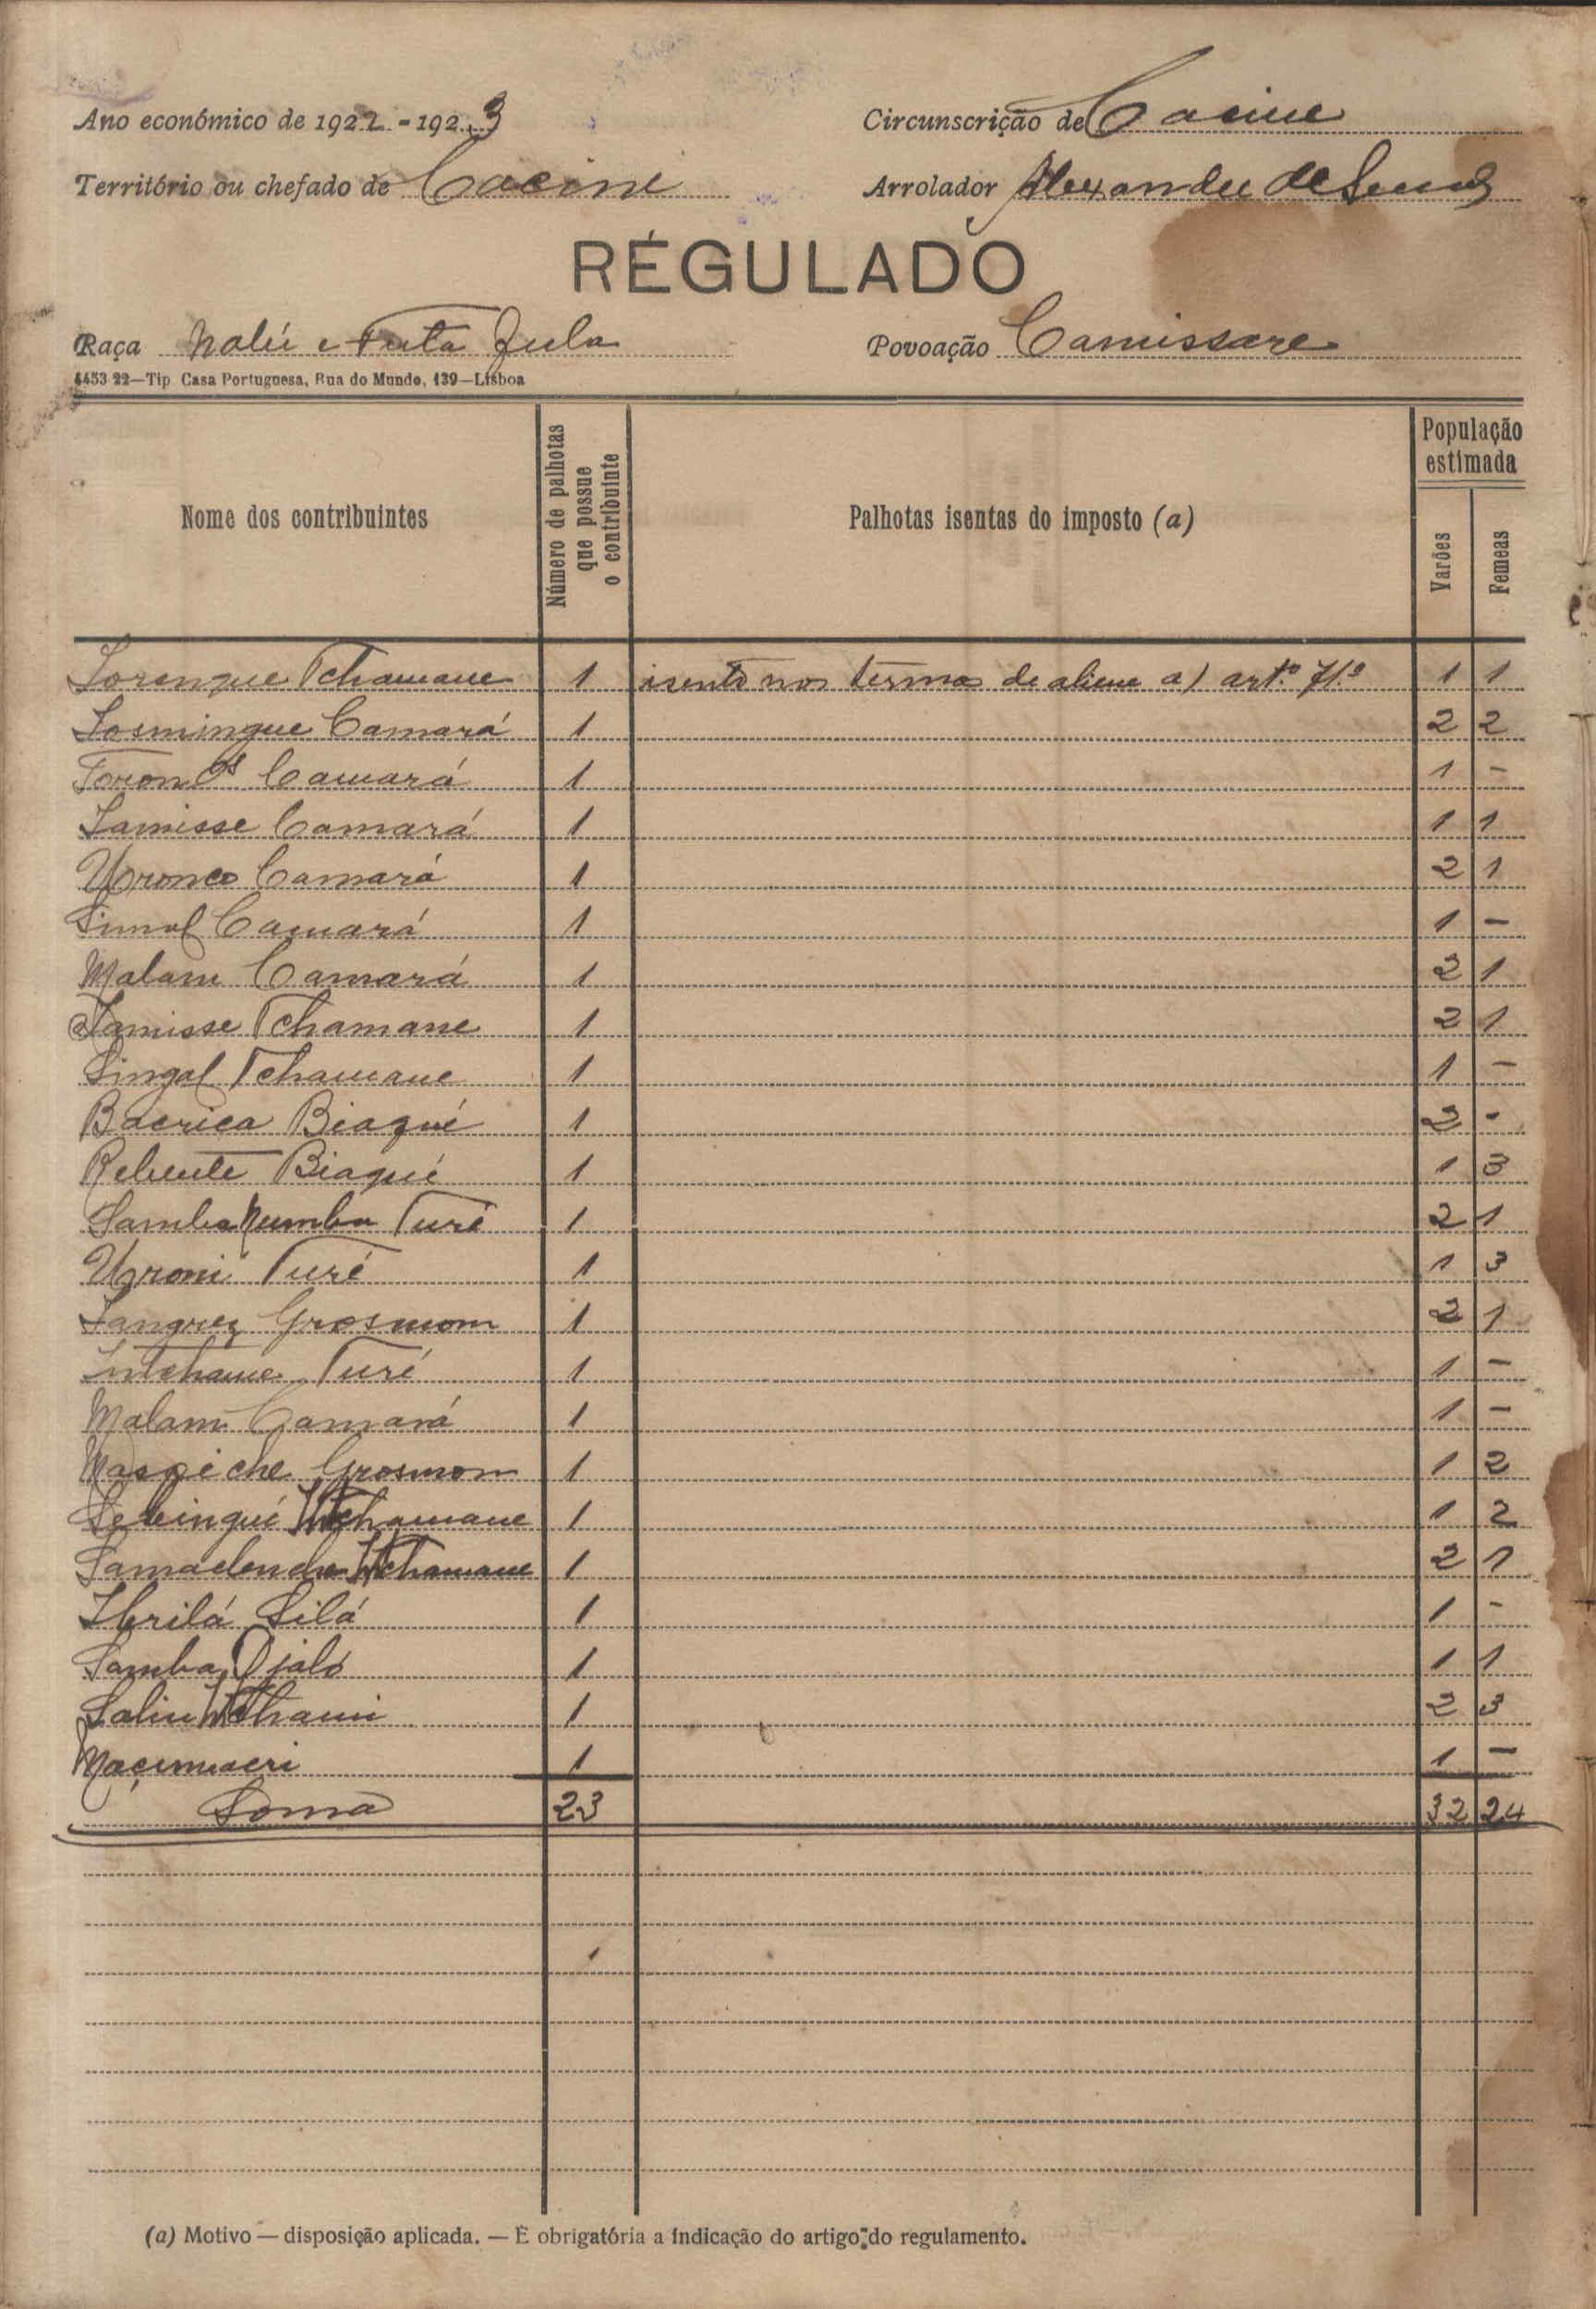 Ano económico de 1922-1923 Circunscrição de Cacine
Território ou chefado de Cacine Arrolador Alexandre de
RÉGULADO
Raça Nalú e Futa Fula Povoação Camissare
4453 22—Tip Casa Portuguesa, Rua do Mundo, 139—Lisboa
Nome dos contribuintes Número de palhotas que possue o contribuinte Palhotas isentas do imposto (a) População estimada Varões Femeas
Lorengue Tchamane 1 isento nos termos de aliene a) artº 7º 1 1
Losmingue Camará 1 2 2
Camará 1 1 -
Lamisse Camará 1 1 1
Camará 1 2 1
Simal Camará 1 1 -
Malam Camará 1 2 1
Lamisse Tchamane 1 2 1
Singal Tchamane 1 1 -
Bacrica Biaqué 1 2 -
Biaqué 1 1 3
Samba Numba Turé 1 2 1
Uroni Turé 1 1 3
Langrez Grosmom 1 2 1
Intchame Turé 1 1 -
Malam Camará 1 1 -
Maspiche Grosmom 1 1 2
Intchamane 1 1 2
Intchamane 1 2 1
Ibrilá Silá 1 1 -
Samba Djaló 1 1 1
Saliu 1 2 3
1 1 -
Soma 23 32 24
(a) Motivo — disposição aplicada. — É obrigatória a indicação do artigo do regulamento.